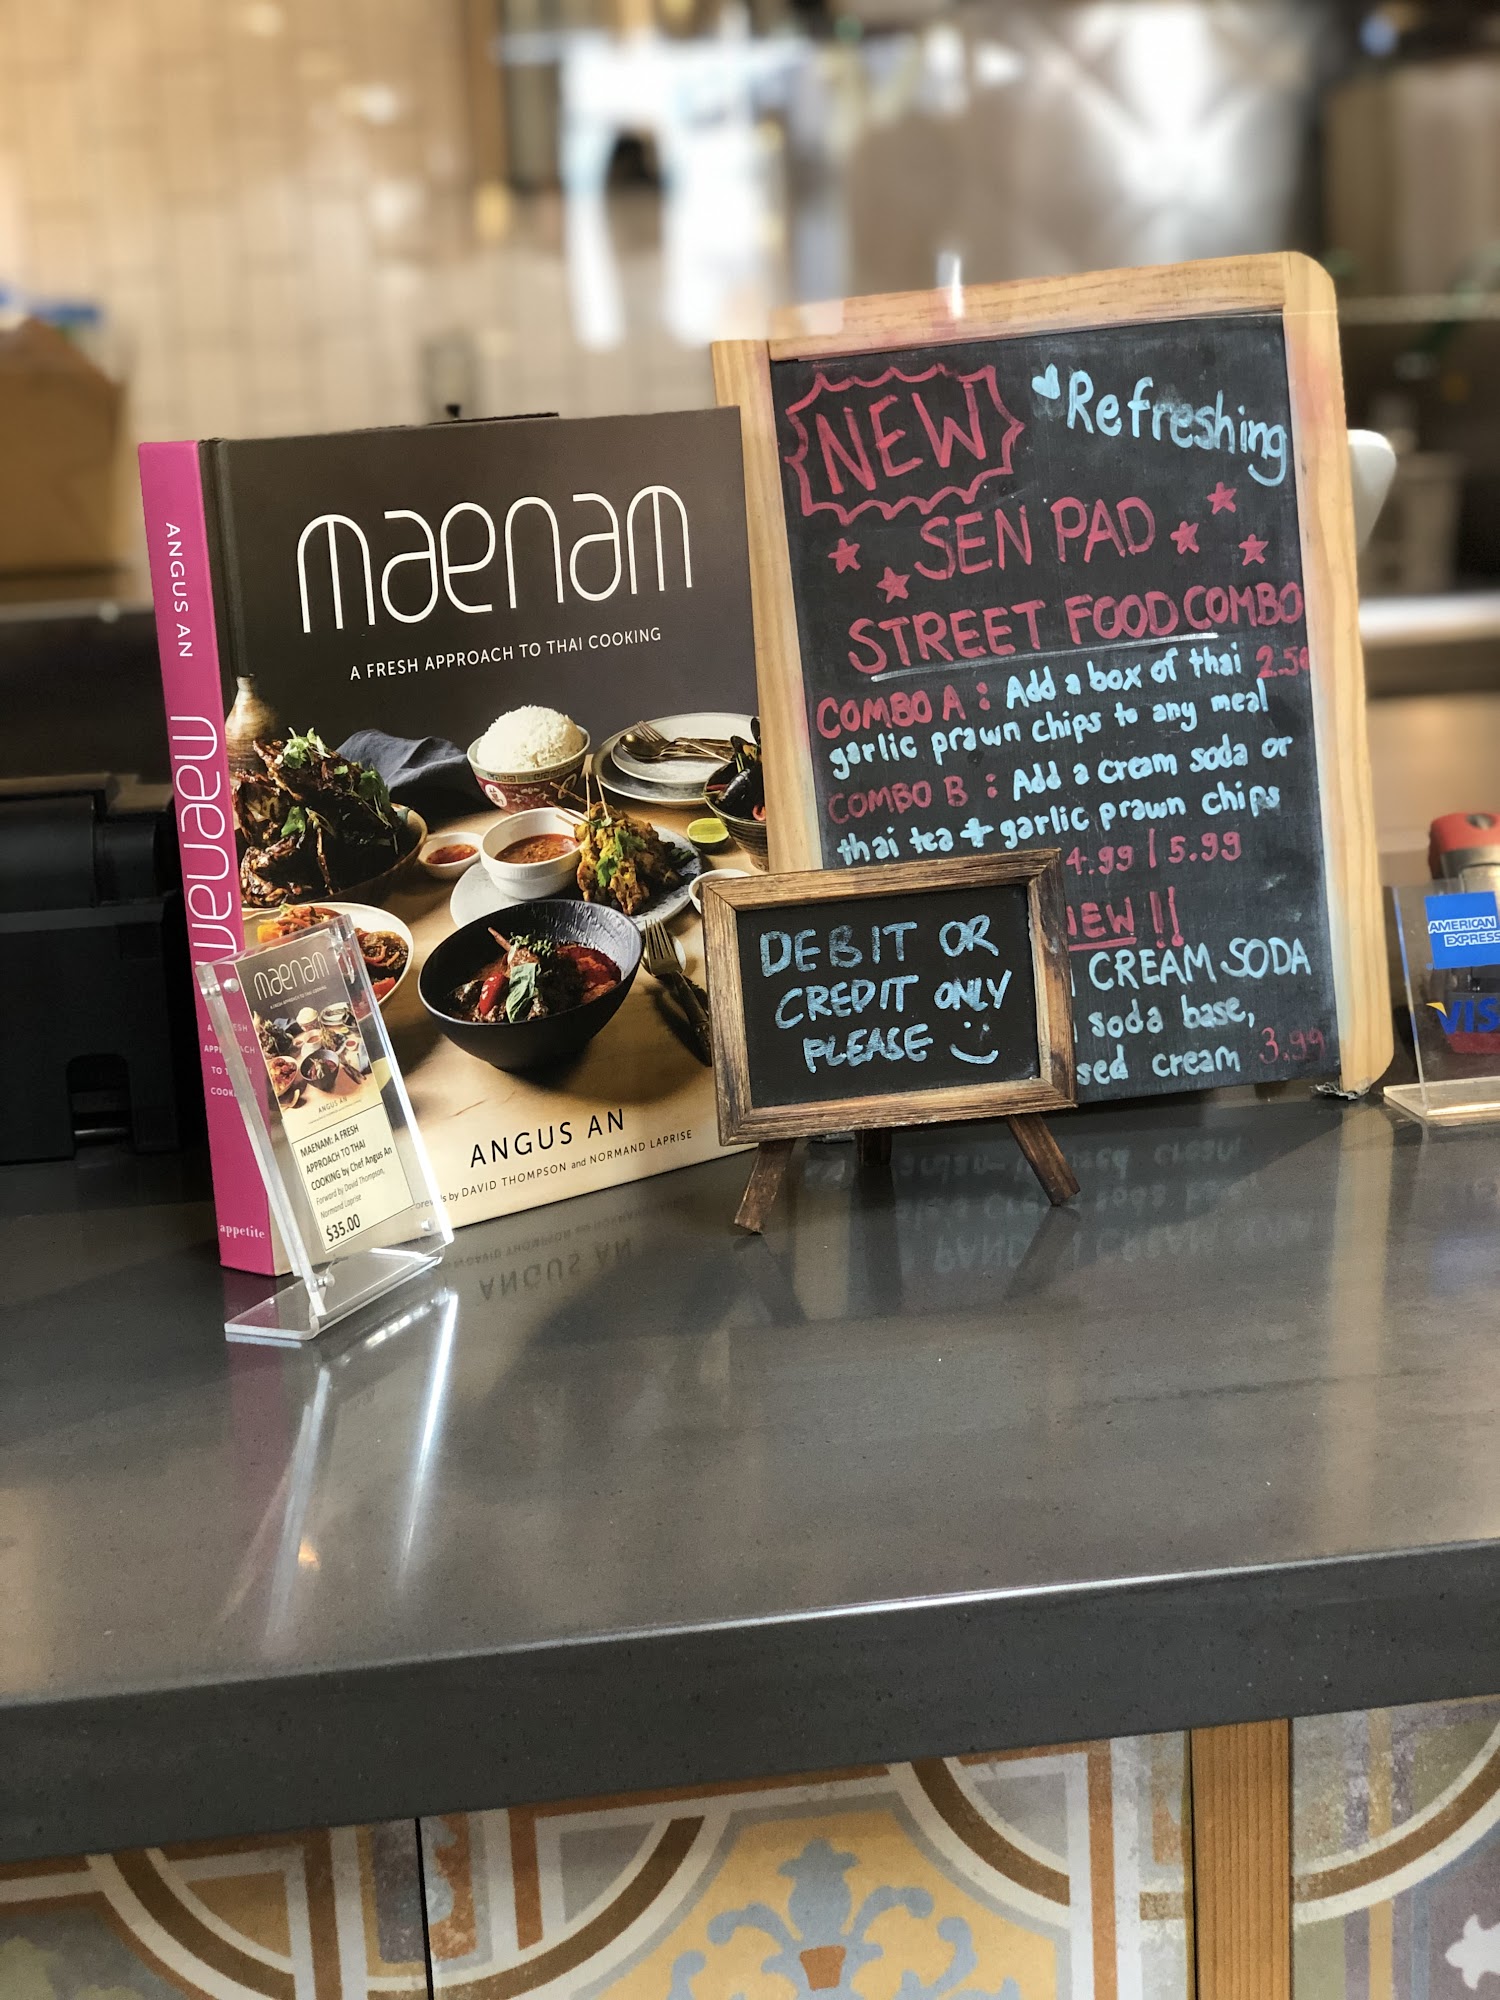 ANGUS AN
maenam
appetite
maenam
A FRESH APPROACH TO THAI COOKING
ANGUS AN
by DAVID THOMPSON and NORMAND LAPRISE
maenam
A FRESH APPROACH TO THAI COOKING
ANGUS AN
MAENAM: A FRESH
APPROACH TO THAI
COOKING by Chef Angus An
Forward by David Thompson,
Normand Laprise
$35.00
NEW
Refreshing
SEN PAD
STREET FOOD COMBO
COMBO A : Add a box of thai
garlic prawn chips to any meal
COMBO B : Add a cream soda or
thai tea + garlic prawn chips
4.99 | 5.99
NEW !!
CREAM SODA
soda base,
cream 3.99
DEBIT OR
CREDIT ONLY
PLEASE
AMERICAN
EXPRESS